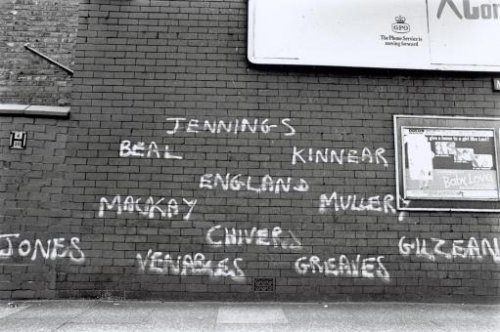 GPO
The Phone Service is
moving forward
JENNINGS
BEAL KINNEAR
ENGLAND
MACKAY MULLERY
CHIVERS
JONES GILZEAN
VENABLES GREAVES
Baby Love